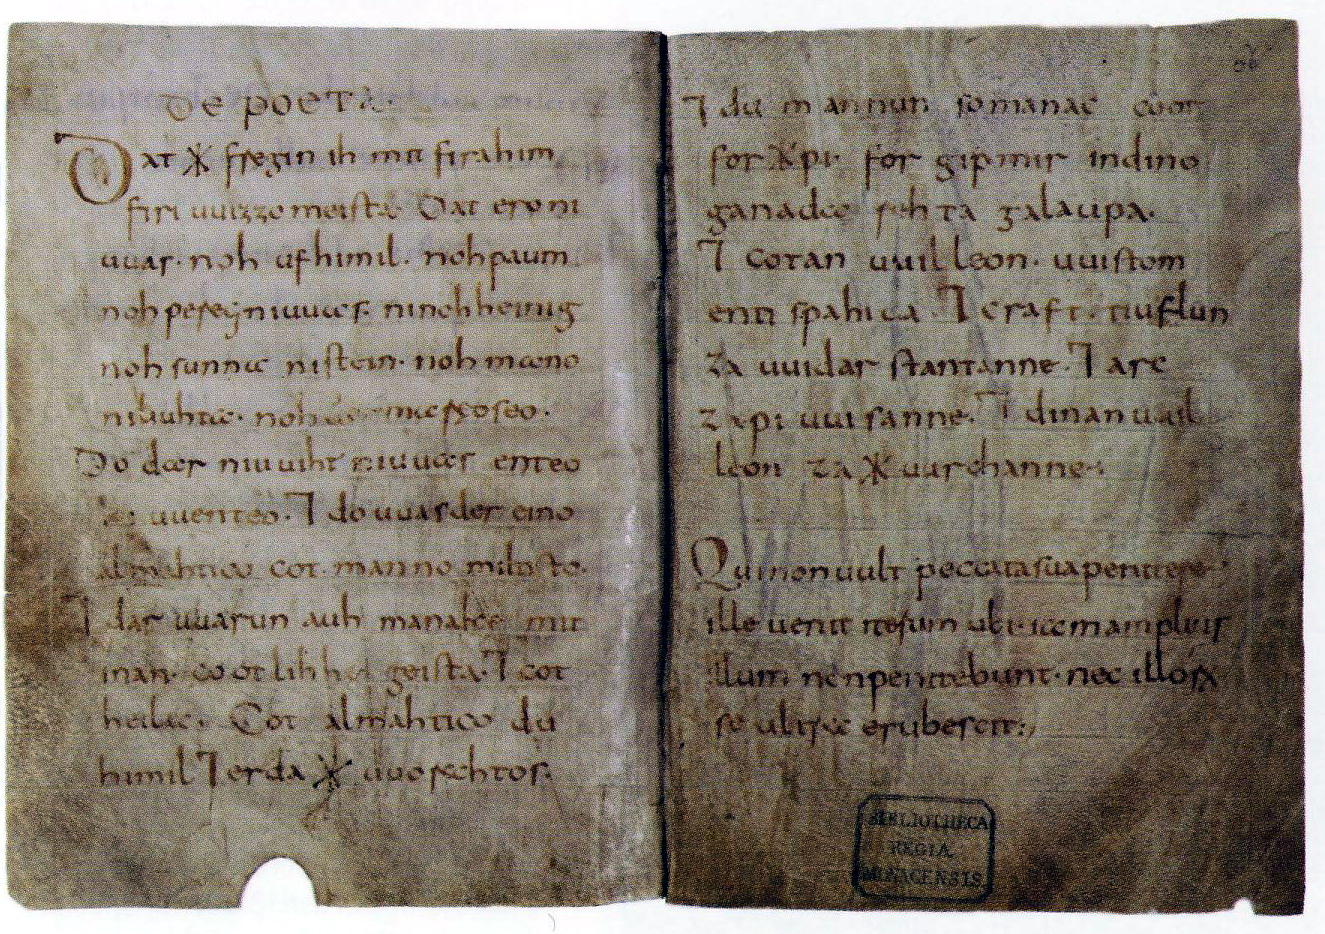 De POETA.
Dat * fregin ih mit firahim
firi uuizzo meista. Dat ero ni
uuas. noh ufhimil. noh paum
noh pereg niuuas. ninohheinig
noh sunna nistein. noh mano
niliuhta. noh der mareoseo.
Do dar niuuiht niuuas enteo
ni uuenteo. ⁊ do uuas der eino
almahtico cot. manno miltisto.
⁊ dar uuarun auh manake mit
inan. cootlihhe geista. ⁊ cot
heilac. Cot almahtico du
himil ⁊ erda * uuorahtos.
⁊ du mannun so manac coot
forxp̄i. for gip mir indino
ganada rehta galaupa.
⁊ cotan uuilleon. uuistóm
enti spahida. ⁊ craft. tiuflun
za uuidar stantanne. ⁊ arc
zapi uuisanne. ⁊ dinan uuil
leon za * uurchanne.
Qui non uult peccata sua penitere
ille uenit iterum ubi iam amplius
illum non penitebunt. nec illorum
se ultra erubescit.
BIBLIOTHECA
REGIA
MONACENSIS